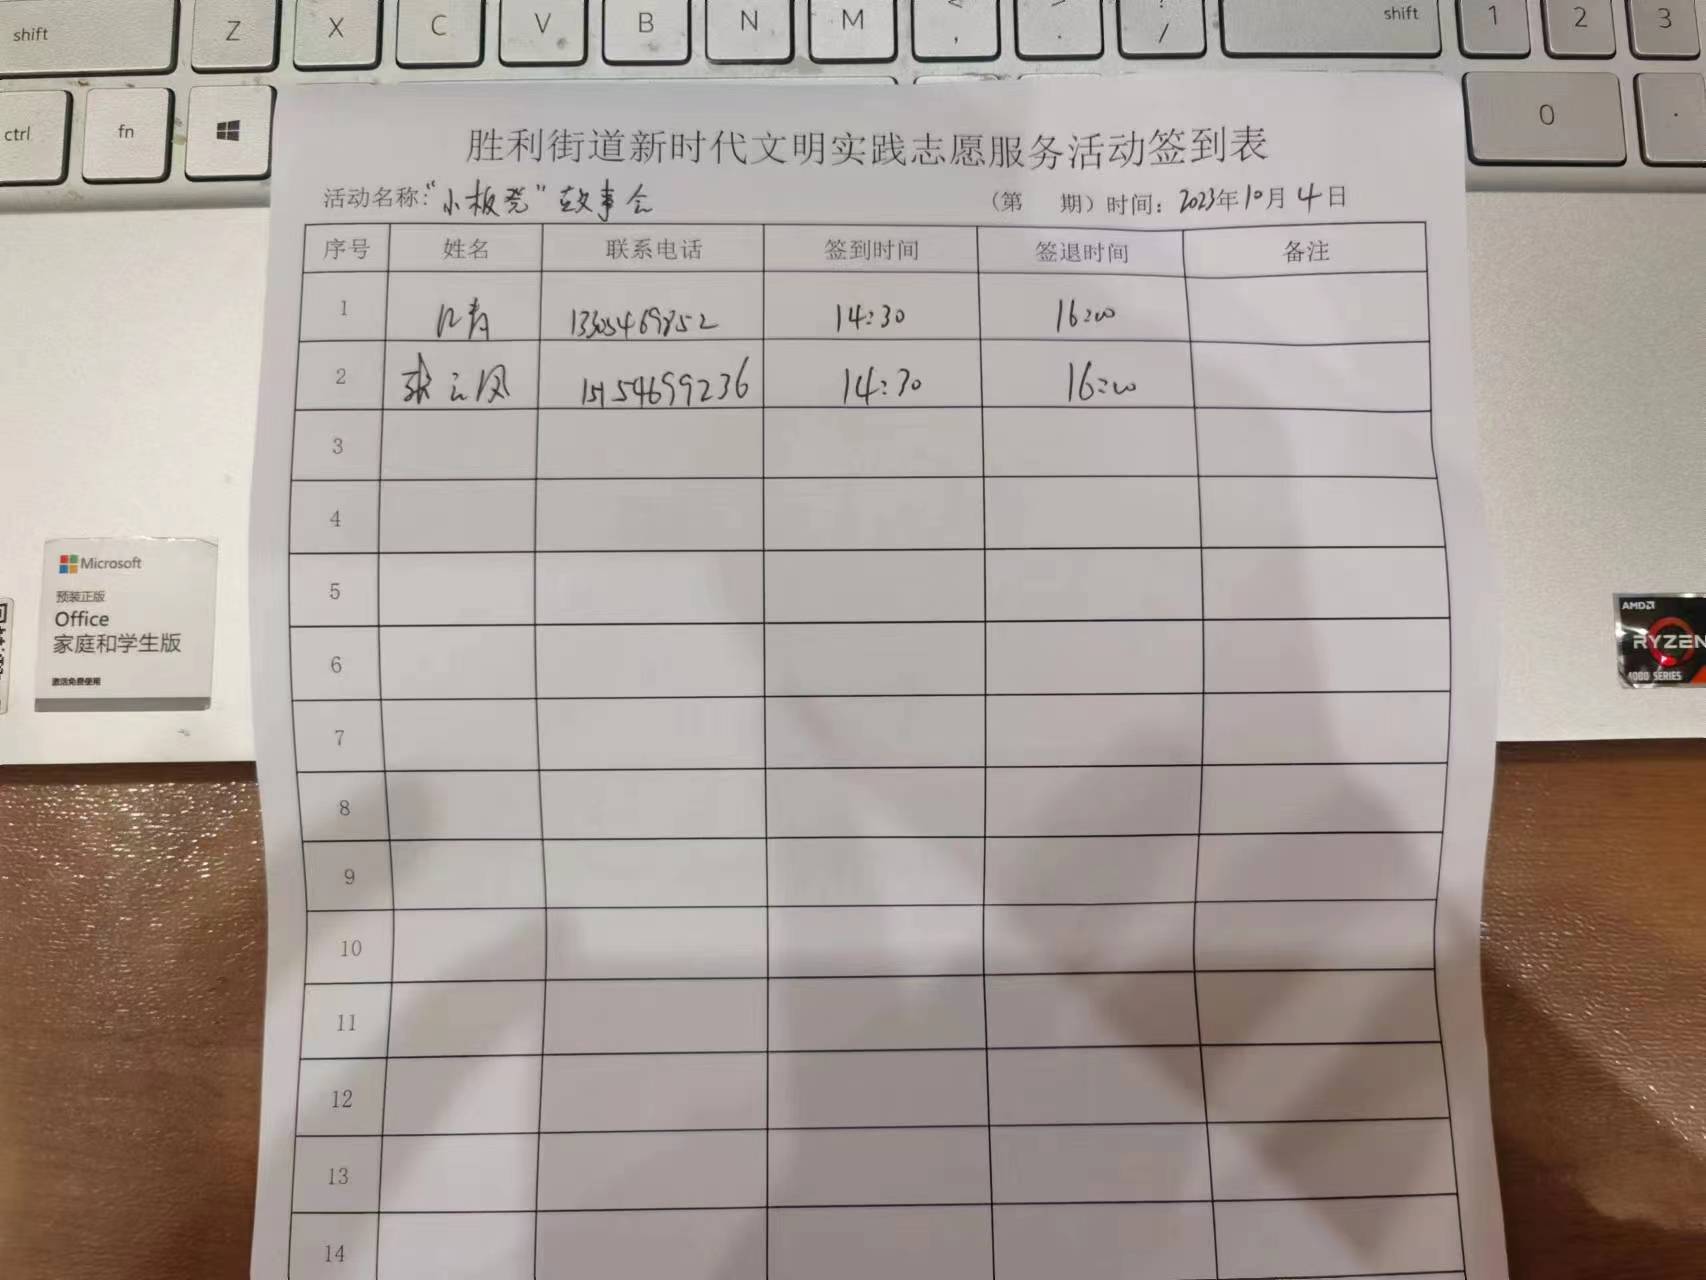 shift Z X C V B N M < , > . ? / shift 1 2 3
ctrl fn 0 .
胜利街道新时代文明实践志愿服务活动签到表
活动名称:“小板凳”故事会 (第 期) 时间: 2023年10月4日
序号 姓名 联系电话 签到时间 签退时间 备注
1 13305469852 14:30 16:00
2 张云凤 15154699236 14:30 16:00
3
4
5
6
7
8
9
10
11
12
13
14
Microsoft
预装正版
Office
家庭和学生版
激活免费使用
AMD
RYZEN
4000 SERIES